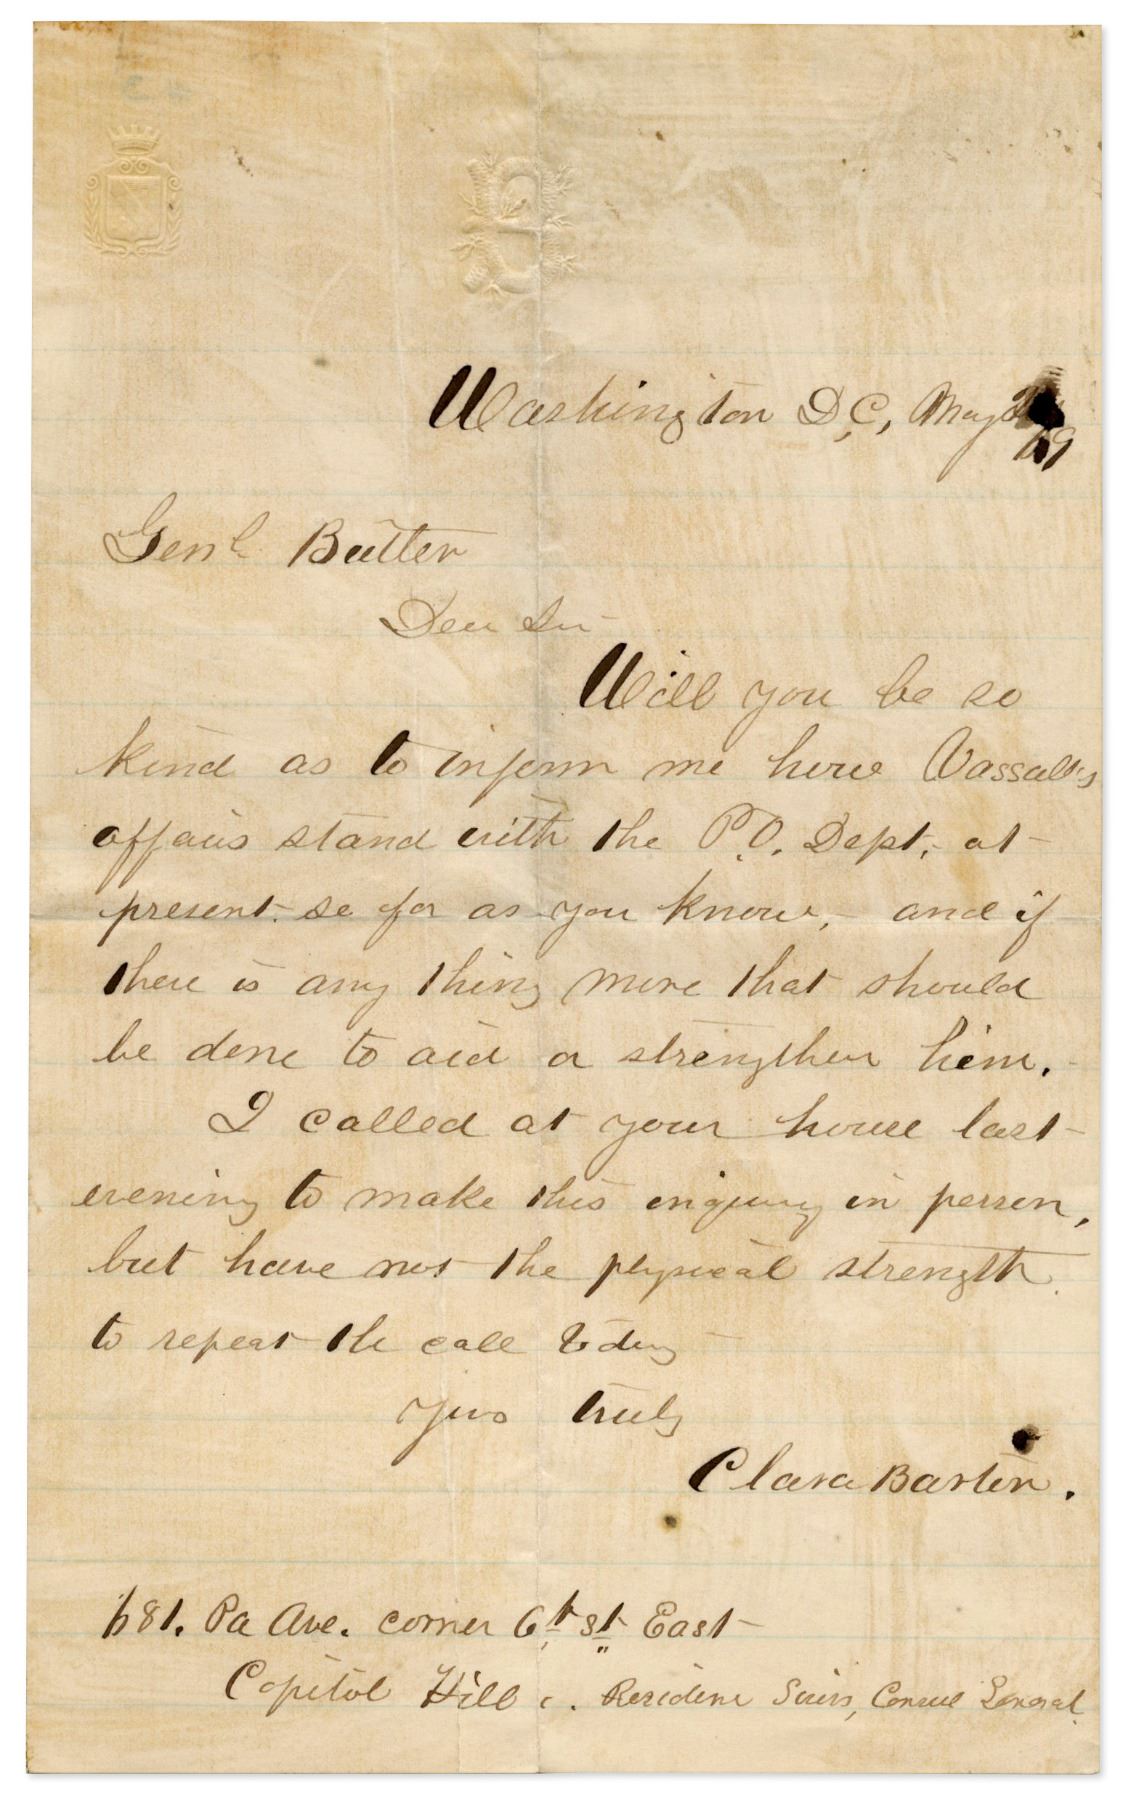 Washington D,C, May
69
Genl Butler
Dear Sir
Will you be so
kind as to inform me how Vassall's
affairs stand with the P.O. Dept, at
present. so far as you know, - and if
there is any thing more that should
be done to aid or strengthen him.
I called at your house last
evening to make this inquiry in person,
but have not the physical strength
to repeat the call today
Yours truly
Clara Barton.
681. Pa Ave. corner 6th St East
Capitol Hill . Residence Swiss, Consul General.